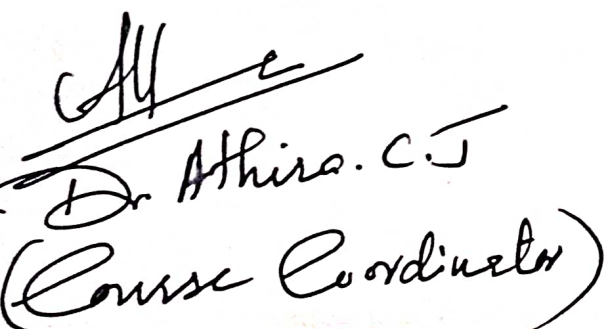 Dr Athira. C.J
(Course Coordinator)